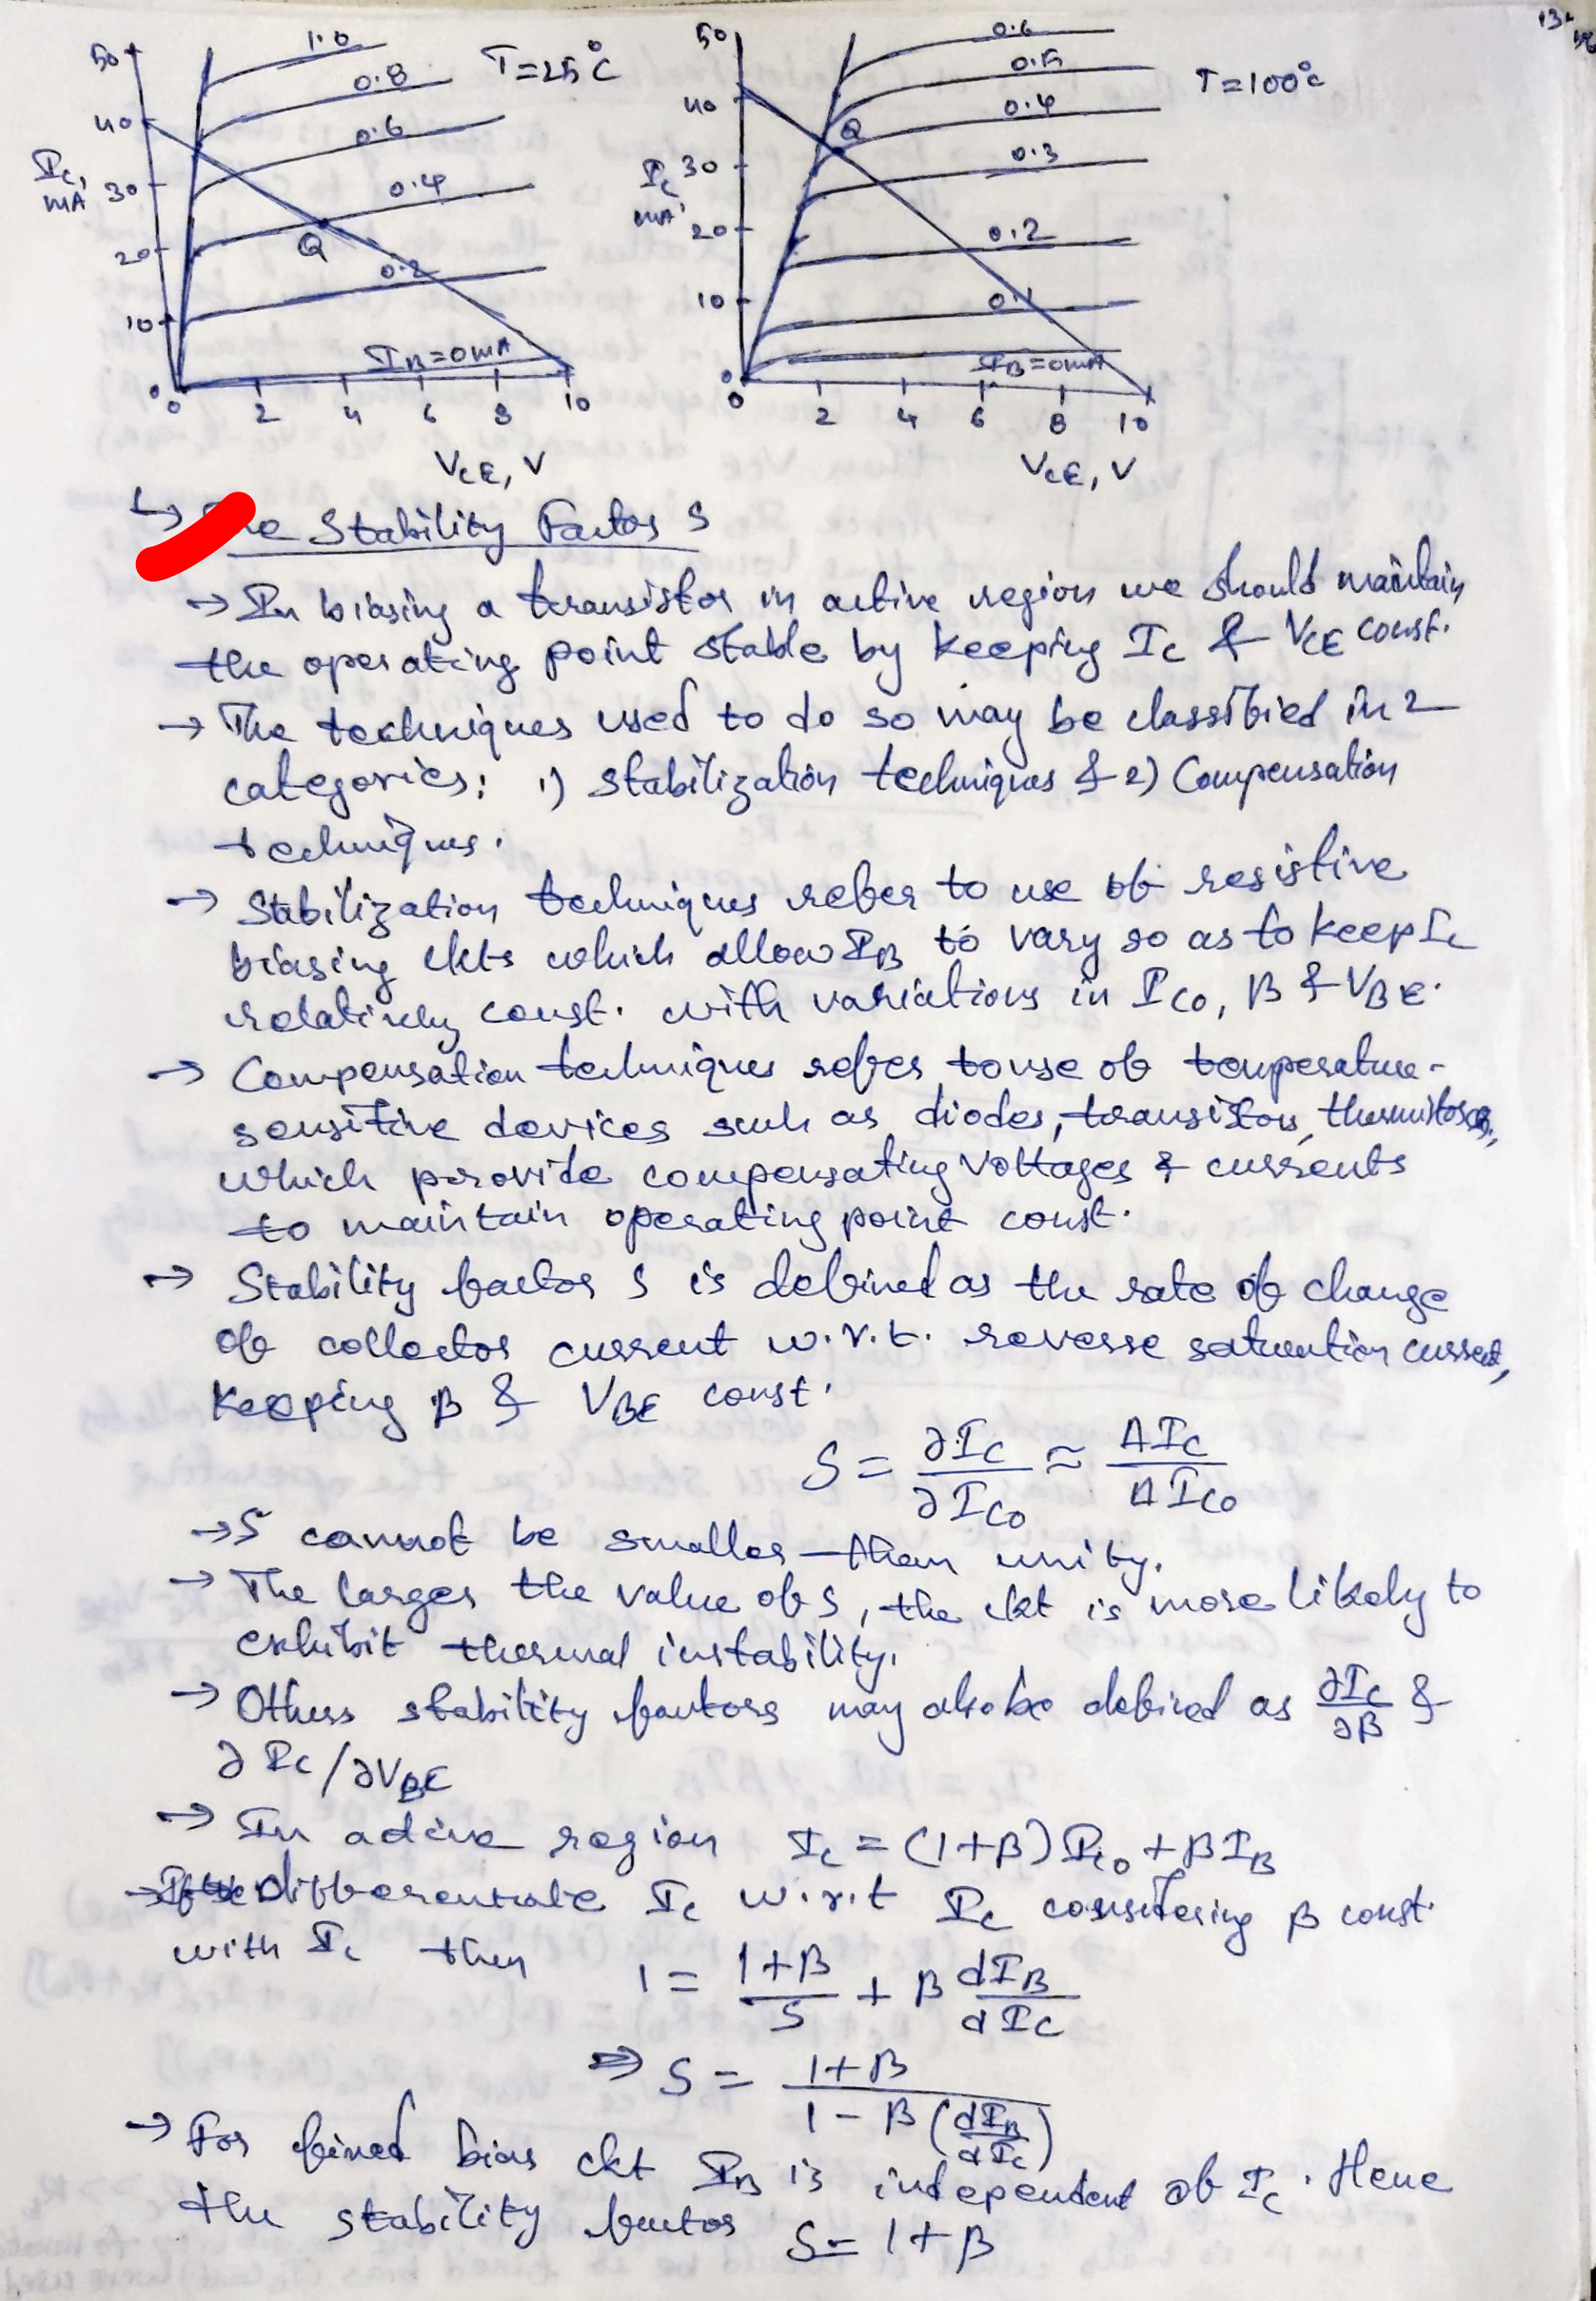 50 1.0 T=25°C
0.8
40
0.6
Ic, mA 30
0.4
20 Q
0.2
10
IB=0mA
0
0 2 4 6 8 10
VCE, V
50 0.6
0.5 T=100°C
40 0.4
Q
Ic, mA 30 0.3
20 0.2
10 0.1
IB=0mA
0
0 2 4 6 8 10
VCE, V
↳ Stability Factor S
→ In biasing a transistor in active region we should maintain
the operating point stable by keeping Ic & VCE const.
→ The techniques used to do so may be classified in 2
categories: 1) Stabilization techniques & 2) Compensation
techniques.
→ Stabilization techniques refer to use of resistive
biasing ckts which allow IB to vary so as to keep Ic
relatively const. with variations in ICO, β & VBE.
→ Compensation techniques refers to use of temperature-
sensitive devices such as diodes, transistors, thermistors,
which provide compensating voltages & currents
to maintain operating point const.
→ Stability factor S is defined as the rate of change
of collector current w.r.t. reverse saturation current,
keeping β & VBE const.
S = ∂IC/∂ICO ≈ ΔIC/ΔICO
→ S cannot be smaller than unity.
→ The larger the value of S, the ckt is more likely to
exhibit thermal instability.
→ Others stability factors may also be defined as ∂Ic/∂β &
∂Ic/∂VBE
→ In active region Ic = (1+β)Ico + βIB
→ differentiate Ic w.r.t Ic considering β const.
with Ic then 1 = (1+β)/S + β dIB/dIC
⇒ S = (1+β)/(1-β(dIB/dIc))
→ For fixed bias ckt IB is independent of Ic. Hence
the stability factor S = 1+β